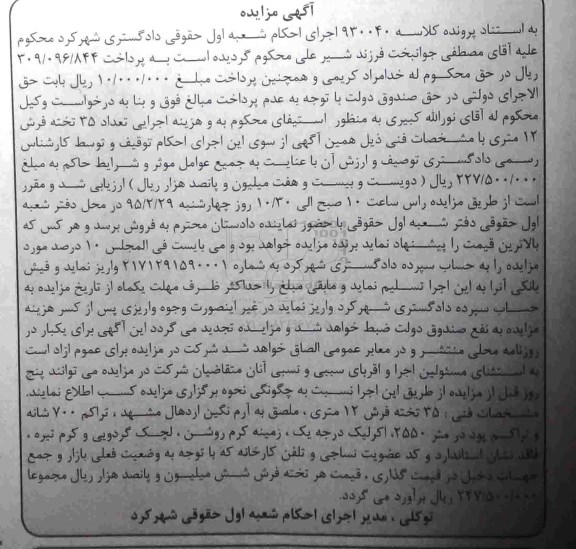 آگهی مزایده
به استناد پرونده کلاسه ۹۳۰۰۴۰ اجرای احکام شعبه اول حقوقی دادگستری شهرکرد محکوم
علیه آقای مصطفی جوانبخت فرزند شیر علی محکوم گردیده است به پرداخت ۳۰۹/۰۹۶/۸۴۴
ریال در حق محکوم له خدامراد کریمی و همچنین پرداخت مبلغ ۱۰/۰۰۰/۰۰۰ ریال بابت حق
الاجرای دولتی در حق صندوق دولت با توجه به عدم پرداخت مبالغ فوق و بنا به درخواست وکیل
محکوم له آقای نورالله کبیری به منظور استیفای محکوم به و هزینه اجرایی تعداد ۳۵ تخته فرش
۱۲ متری با مشخصات فنی ذیل همین آگهی از سوی این اجرای احکام توقیف و توسط کارشناس
رسمی دادگستری توصیف و ارزش آن با عنایت به جمیع عوامل موثر و شرایط حاکم به مبلغ
۲۲۷/۵۰۰/۰۰۰ ریال ( دویست و بیست و هفت میلیون و پانصد هزار ریال ) ارزیابی شد و مقرر
است از طریق مزایده راس ساعت ۱۰ صبح الی ۱۰/۳۰ روز چهارشنبه ۹۵/۲/۲۹ در محل دفتر شعبه
اول حقوقی دفتر شعبه اول حقوقی با حضور نماینده دادستان محترم به فروش برسد و هر کس که
بالاترین قیمت را پیشنهاد نماید برنده مزایده خواهد بود و می بایست فی المجلس ۱۰ درصد مورد
مزایده را به حساب سپرده دادگستری شهرکرد به شماره ۲۱۷۱۲۹۱۵۹۰۰۰۱ واریز نماید و فیش
بانکی آنرا به این اجرا تسلیم نماید و مابقی مبلغ را حداکثر ظرف مهلت یکماه از تاریخ مزایده به
حساب سپرده دادگستری شهرکرد واریز نماید در غیر اینصورت وجوه واریزی پس از کسر هزینه
مزایده به نفع صندوق دولت ضبط خواهد شد و مزایده تجدید می گردد این آگهی برای یکبار در
روزنامه محلی منتشر و در معابر عمومی الصاق خواهد شد شرکت در مزایده برای عموم ازاد است
به استثنای مسئولین اجرا و اقربای سببی و نسبی آنان متقاضیان شرکت در مزایده می توانند پنج
روز قبل از مزایده از طریق این اجرا نسبت به چگونگی نحوه برگزاری مزایده کسب اطلاع نمایند.
مشخصات فنی : ۳۵ تخته فرش ۱۲ متری ، ملصق به آرم نگین اردهال مشهد ، تراکم ۷۰۰ شانه
و تراکم پود در متر ۲۵۵۰، اکرلیک درجه یک ، زمینه کرم روشن ، لچک گردویی و کرم تیره ،
فاقد نشان استاندارد و کد عضویت نساجی و تلفن کارخانه که با توجه به وضعیت فعلی بازار و جمع
جهات دخیل در قیمت گذاری ، قیمت هر تخته فرش شش میلیون و پانصد هزار ریال مجموعا
۲۲۷/۵۰۰/۰۰۰ ریال برآورد می گردد.
توکلی ، مدیر اجرای احکام شعبه اول حقوقی شهرکرد